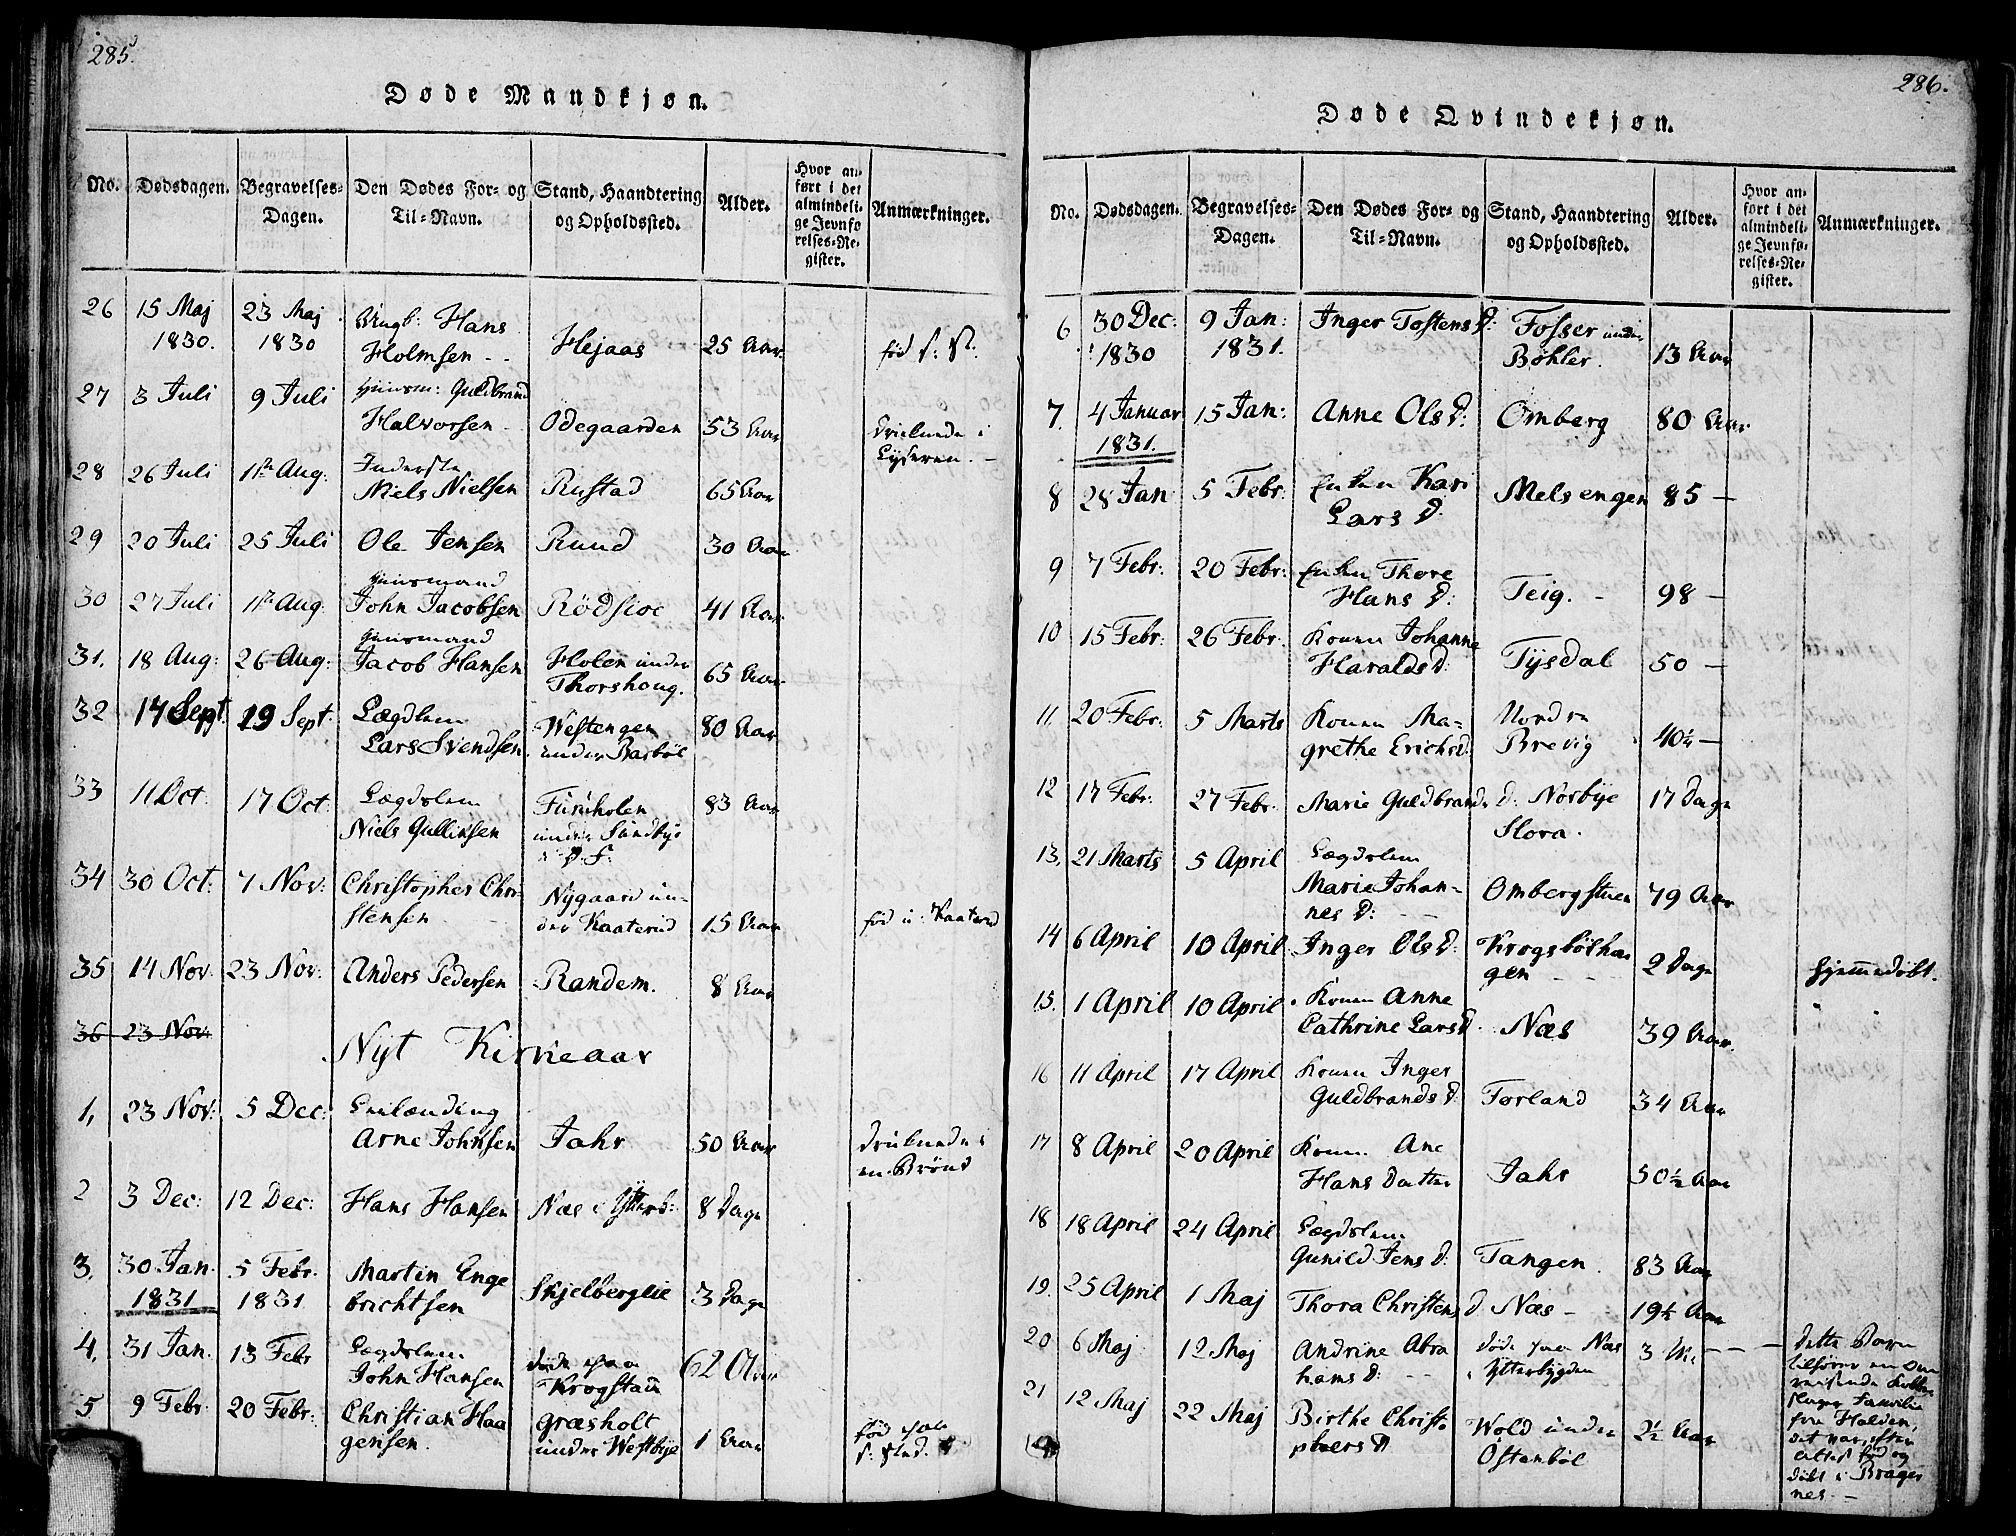 285.
Døde Mandkjøn.
No. Dødsdagen. Begravelses-Dagen. Den Dødes For- og Til-Navn. Stand, Haandtering og Opholdssted. Alder. Hvor anført i det almindelige Jevnførelses-Register. Anmærkninger.
26 15 Maj 23 Maj Ungk: Hans
1830. 1830 Holmsen - - Hejaas 25 Aar født s: St:
27 3 Juli 9 Juli Huusm: Guldbrand
Halvorsen - Odegaarden 53 Aar druknede i
Lyseren. -
28 26 Juli 1ste Aug: Inderste
Niels Nielsen Rustad 65 Aar
29 20 Juli 25 Juli Ole Jensen Rund 30 Aar
30 27 Juli 1ste Aug: Huusmand
John Jacobsen Rödsioe 41 Aar
31. 18 Aug: 26 Aug: Huusmand
Jacob Hansen Holen under
Thorshoug. 65 Aar
32 14 Sept. 19 Sept: Lægdslem
Lars Svendsen Westengen
under Basböl 80 Aar
33 11 Oct: 17 Oct: Lægdslem
Niels Gullixsen Furuholen
under Sundbye
D: S: 83 Aar
34 30 Oct: 7 Nov: Christopher Chri-
stensen Nygaard un-
der Kaaterud 15 Aar fød u: Kaaterud
35 14 Nov: 23 Nov: Anders Pedersen Randem. 8 Aar
36 23 Nov:
Nyt Kirkeaar
1, 23 Nov: 5 Dec:
Arne Johnsen Jahr 50 Aar druknede i
en Brønd
2 3 Dec: 12 Dec: Hans Hansen Næs i Ytterb: 8 Dage
3. 30 Jan. 5 Febr. Martin Enge
1831 1831 brichtsen Skjelberglie 3 Dage
4. 31 Jan. 13 Febr Lægdslem
John Hansen døde paa
Krogstad 62 Aar
5 9 Febr: 20 Febr: Christian Haa
gensen. Græsholt
under Westbye 1 Aar fød paa
s: Sted.
286.
Døde Qvindekjøn.
No. Dødsdagen. Begravelses-Dagen. Den Dødes For- og Til-Navn. Stand, Haandtering og Opholdssted. Alder. Hvor anført i det almindelige Jevnførelses-Register. Anmærkninger.
6 30 Dec: 9 Jan: Inger TostensD: Fosser under
1830 1831. Böhler. 13 Aar
7. 4 Januar 15 Jan: Anne OlsD: Omberg 80 Aar
1831.
8 28 Jan 5 Febr: Enken Kari
Lars D: Melsengen 85 —
9 7 Febr: 20 Febr: Enken Thore
Hans D: Teig. - 98 —
10 15 Febr: 26 Febr: Konen Johanne
HaraldsD: Tysdal 50 —
11. 20 Febr: 5 Marts Konen Ma-
grethe ErichsD: Nordre
Brevig 40½ —
12 17 Febr: 27 Febr: Marie Guldbrands D: Norbye
Hora. 17 Dage
13. 21 Marts 5 April Lægdslem
Marie Johan-
nes D: - - Ombergstuen 79 Aar
14 6 April 10 April Inger OlsD: Krogsbölhau
gen - - 2 Dage Hjemmedöbt.
15. 1 April 10 April Konen Anne
Cathrine LarsD. Næs 39 Aar.
16 11 April 17 April Konen Inger
GuldbrandsD: Forland 34 Aar
17 8 April 20 April Konen Ane
Hans Datter Jahr 50½ Aar
18 18 April 24 April Lægdslem
Gunild JensD: Tangen. 83 Aar
19. 25 April 1 Maj Thora Christens D: Næs - 19½ Aar
20 6 Maj 12 Maj Andrine Abra
hams D: - - døde paa Næs
i Ytterbygden 3 - - - dette Barn
tilhörer en om
reisende
Familie
fra Halden,
det var efter
fød og
döbt i Brager
nes. —
21 12 Maj 22 Maj Birthe Christo
phers D Wold under
Östenböl 2½ Aar